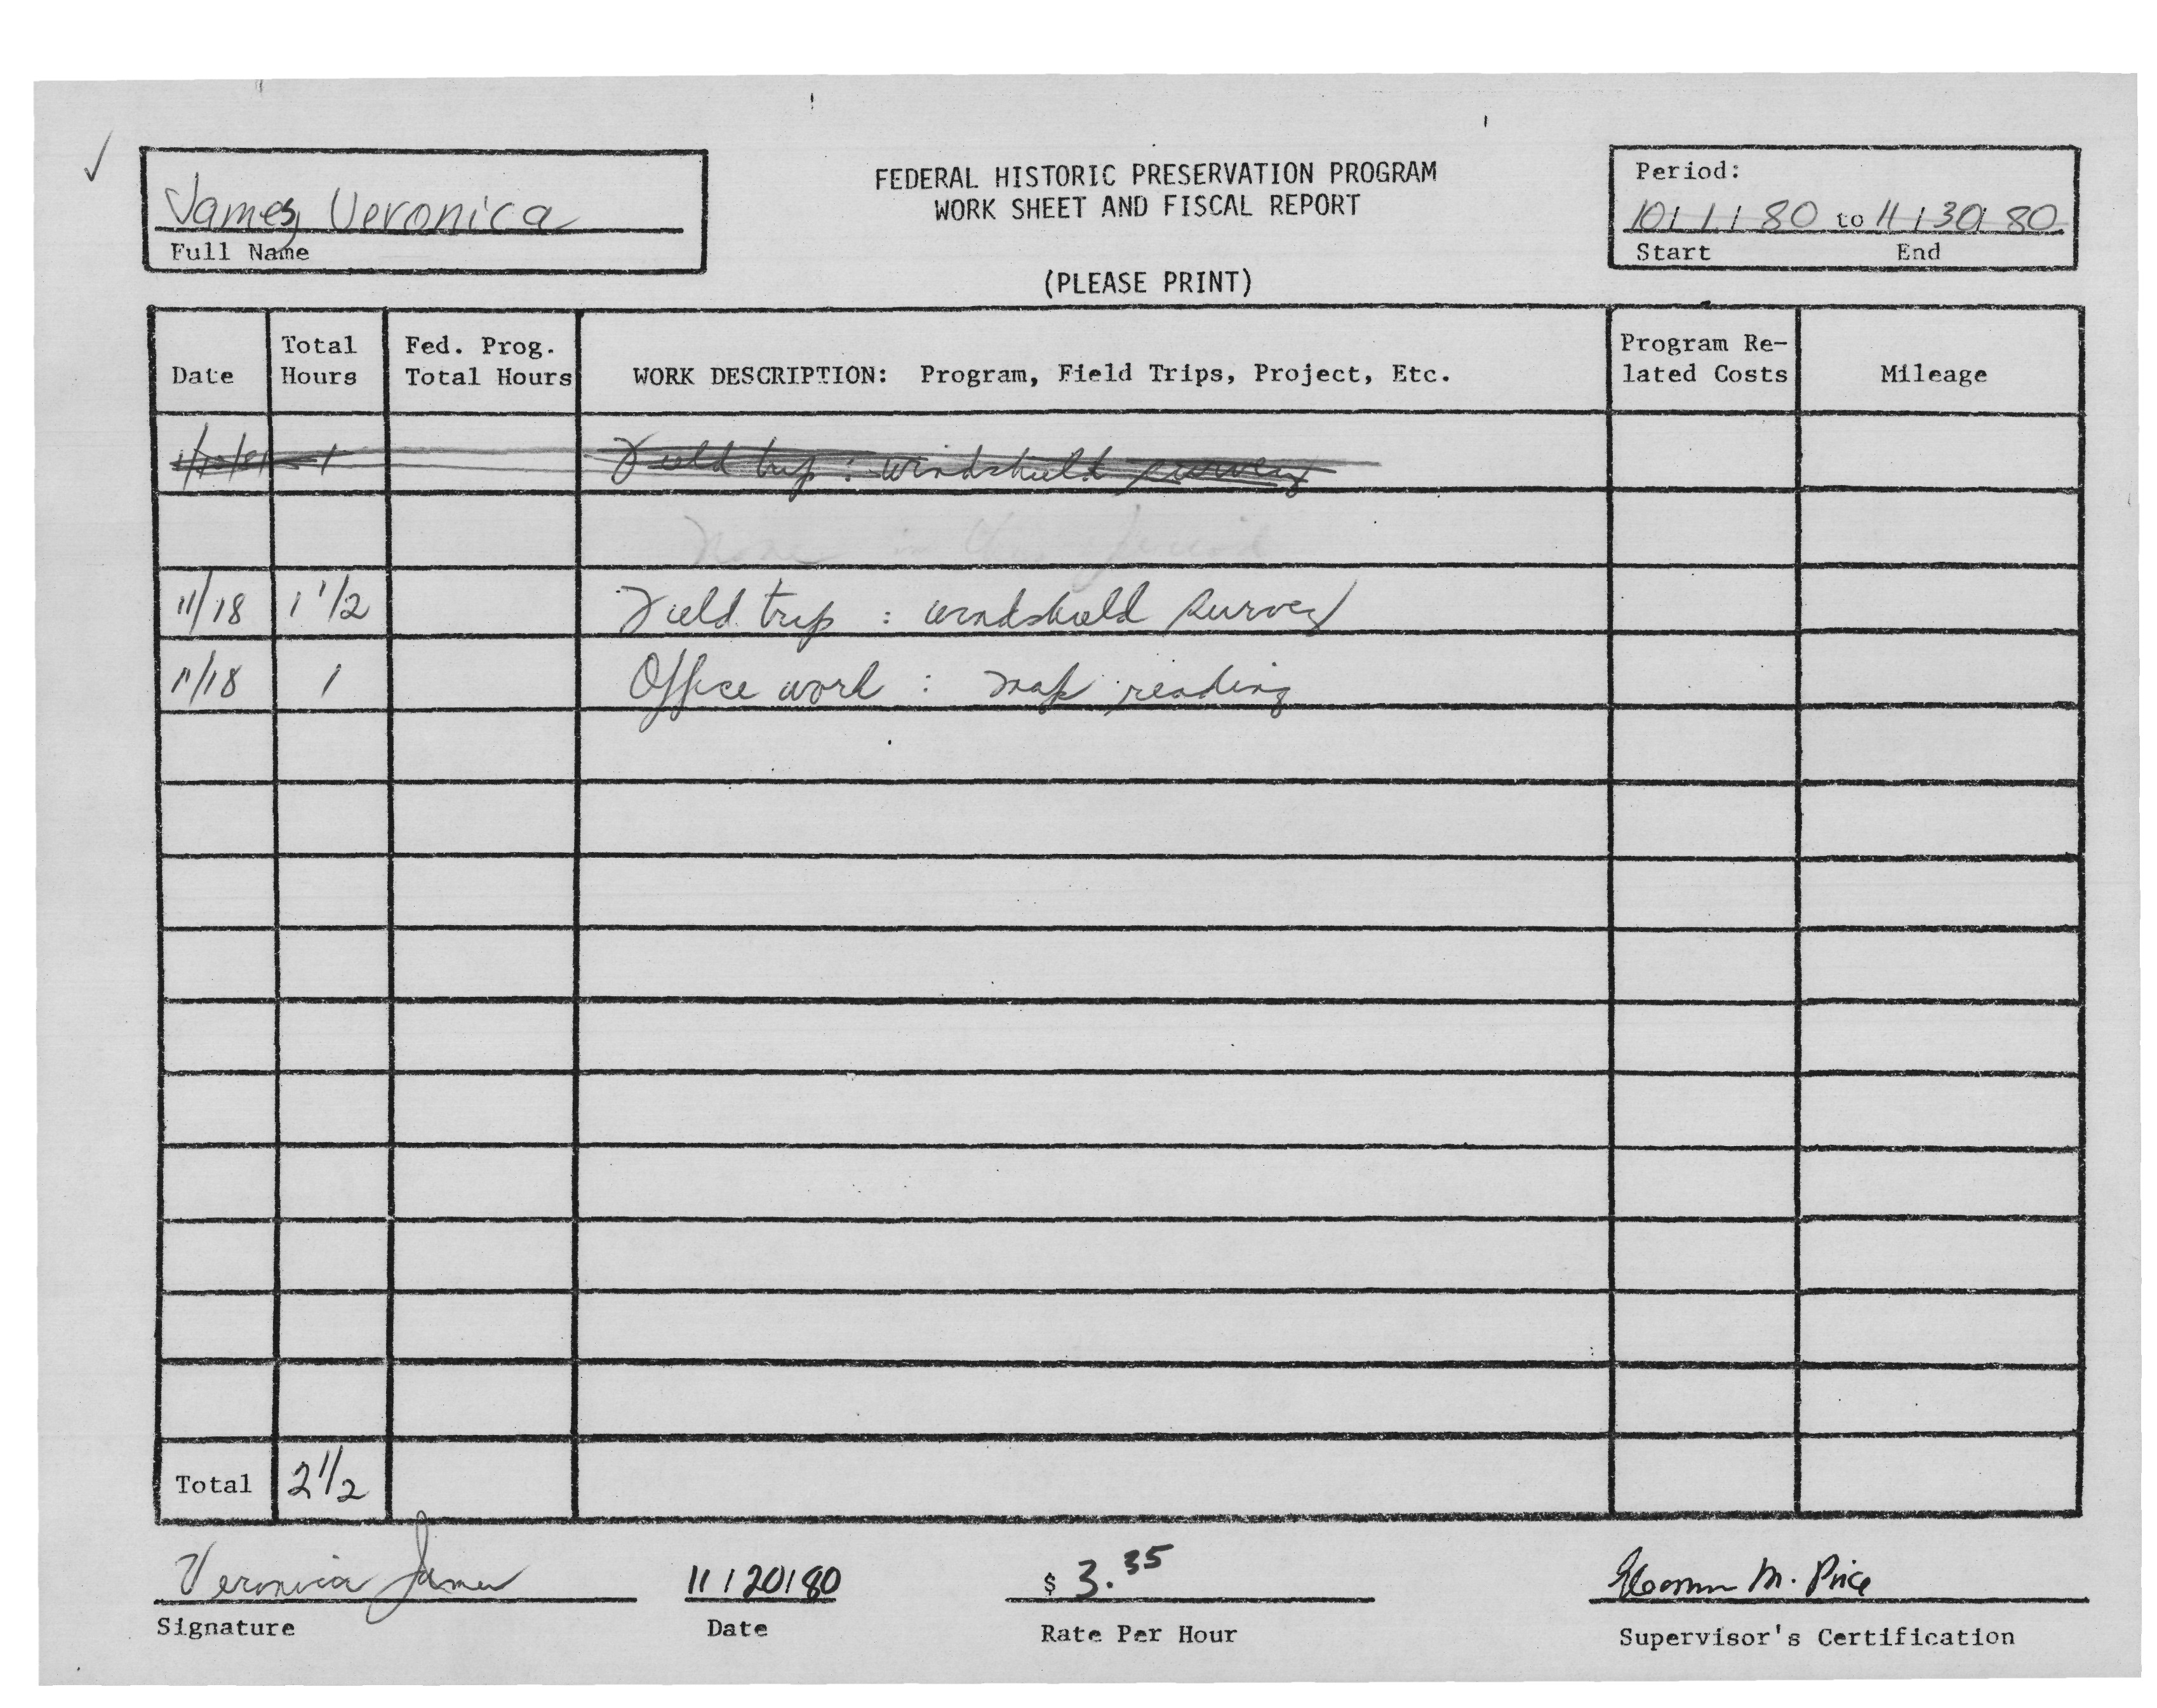 James, Veronica
Full Name
FEDERAL HISTORIC PRESERVATION PROGRAM
WORK SHEET AND FISCAL REPORT
(PLEASE PRINT)
Period:
10/1/80 to 11/30/80
Start End
Date Total Hours Fed. Prog. Total Hours WORK DESCRIPTION: Program, Field Trips, Project, Etc. Program Re-lated Costs Mileage
1 Field trip : windshield survey
None in this period
11/18 1 1/2 Field trip : windshield survey
11/18 1 Office work : map reading
Total 2 1/2
Veronica James 11/20/80 $ 3.35 M. Price
Signature Date Rate Per Hour Supervisor's Certification